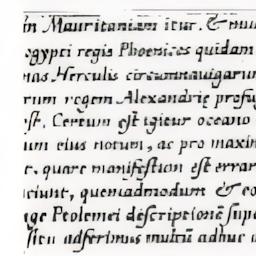 in Mauritaniam itur. & mu
egypti regis Phoenices quidam
nas Herculis circumnauigarun
rum regem Alexandrię profug
est. Certum est igitur oceano
um eius notum, ac pro maxim
t. quare manifestum est errar
ciunt, quemadmodum & eo
ge Ptolemei descriptionē supe
situ adferimus multū adhuc